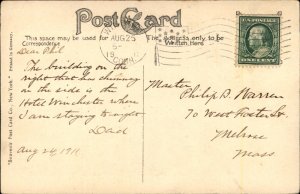 Post Card
This space may be used for Correspondence
The address only to be Written Here
"Souvenir Post Card Co., New York." Printed in Germany.
AUG 25
CONN
U.S. POSTAGE
ONE CENT
Dear Phil
The building on the
right that has chimney
on the side is the
Hotel Winchester where
I am staying to-night
Dad
Aug 24, 1911
Master
Philip B. Warren
70 West Foster St
Melrose
Mass